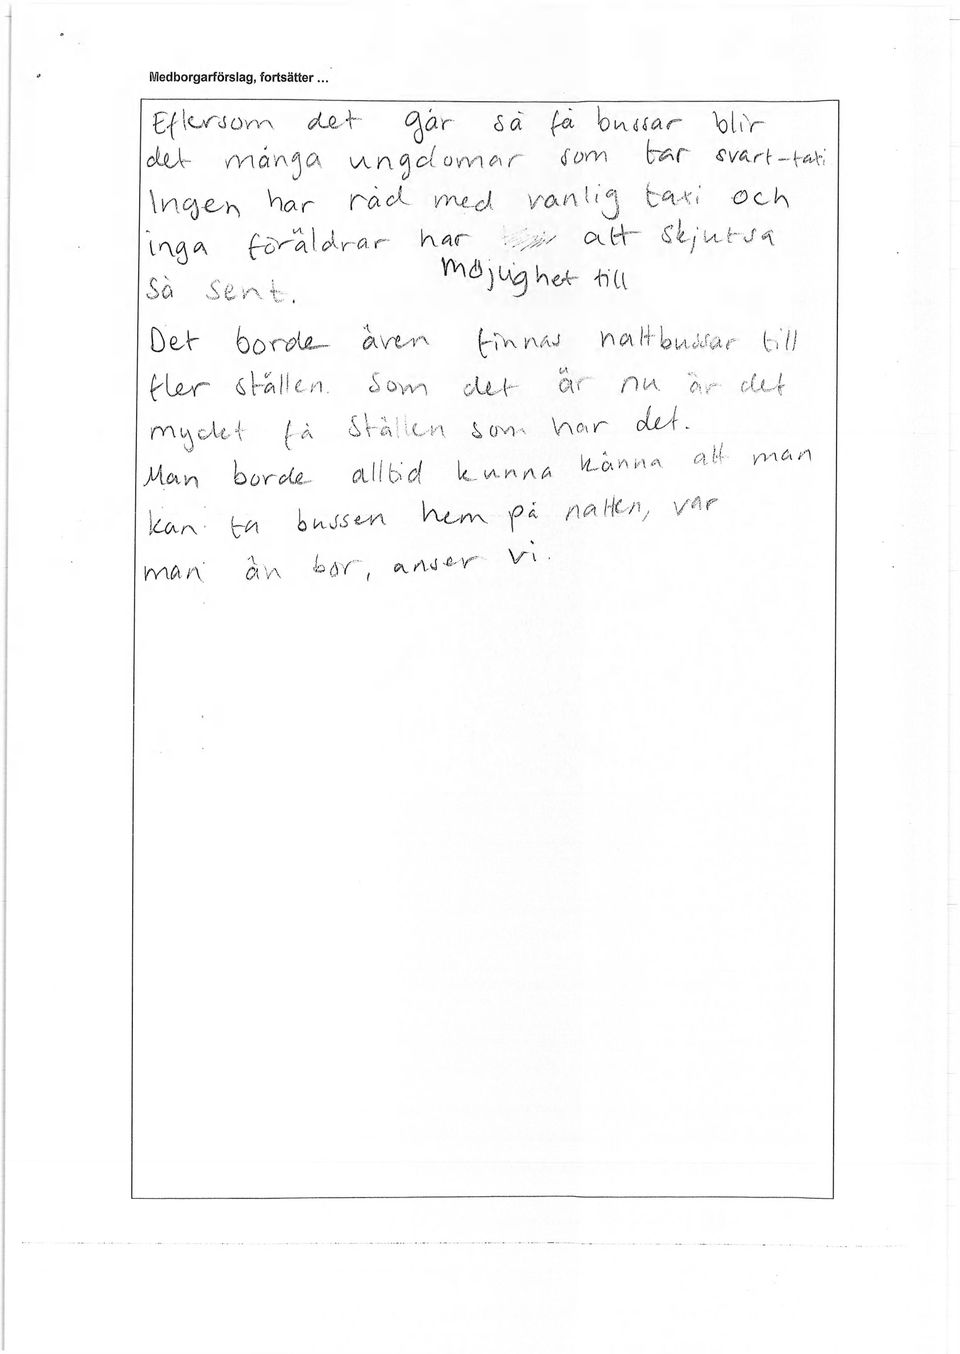 Medborgarförslag, fortsätter ...
Eftersom det går så få bussar blir
det många ungdomar som tar svart-taxi
Ingen har råd med vanlig taxi och
inga föräldrar har att skjutsa
möjlighet till
så sent.
Det borde även finnas nattbussar till
fler ställen. Som det är nu är det
mycket få ställen som har det.
Man borde alltid kunna känna att man
kan ta bussen hem på natten, var
man än bor, anser vi.